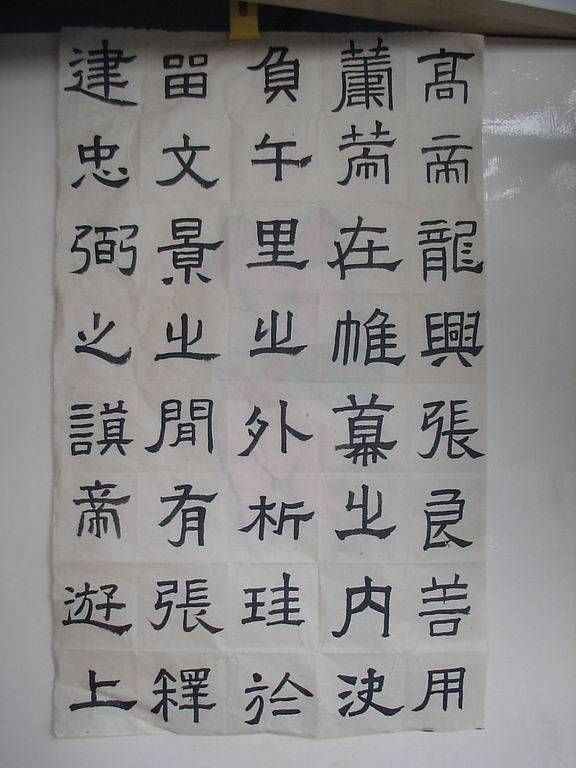 高帝龍興張良善用
籌策在帷幕之内決
負午里之外析珪於
留文景之間有張釋
建忠弼之謨帝遊上